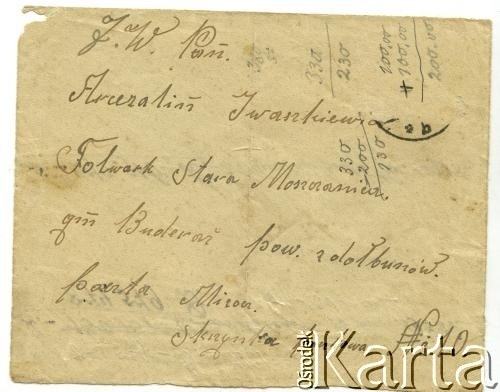 J. W. Pań.
Iwaszkiewicz
Folwark Stara Moszczanica
gm Buderaż pow. zdołbunów.
poczta Mizocz
Skrzynka pocztowa No 10
330
230
100.00
+ 100.00
200.00
330
- 200
130
Ośrodek
Karta